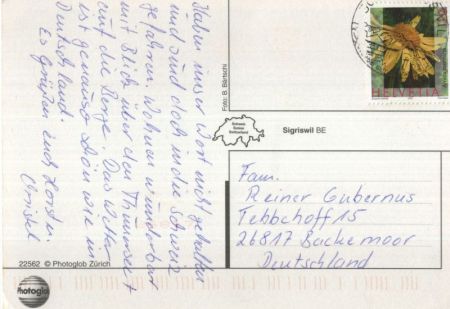 Haben unser Wort nicht gehalten
und sind doch in die Schweiz
gefahren. Wohnen wunderbar
mit Blick über den Thunersee +
auf die Berge. Das Wetter
ist genauso schön wie in
Deutschland.
Es grüßen euch Horst u.
Christel
Foto: B. Bärtschi
HELVETIA
Schweiz
Suisse
Svizzera
Switzerland
Sigriswil BE
Fam.
Reiner Gubernus
Tebbehoff 15
26817 Backemoor
Deutschland
22562 © Photoglob Zürich
Photoglob